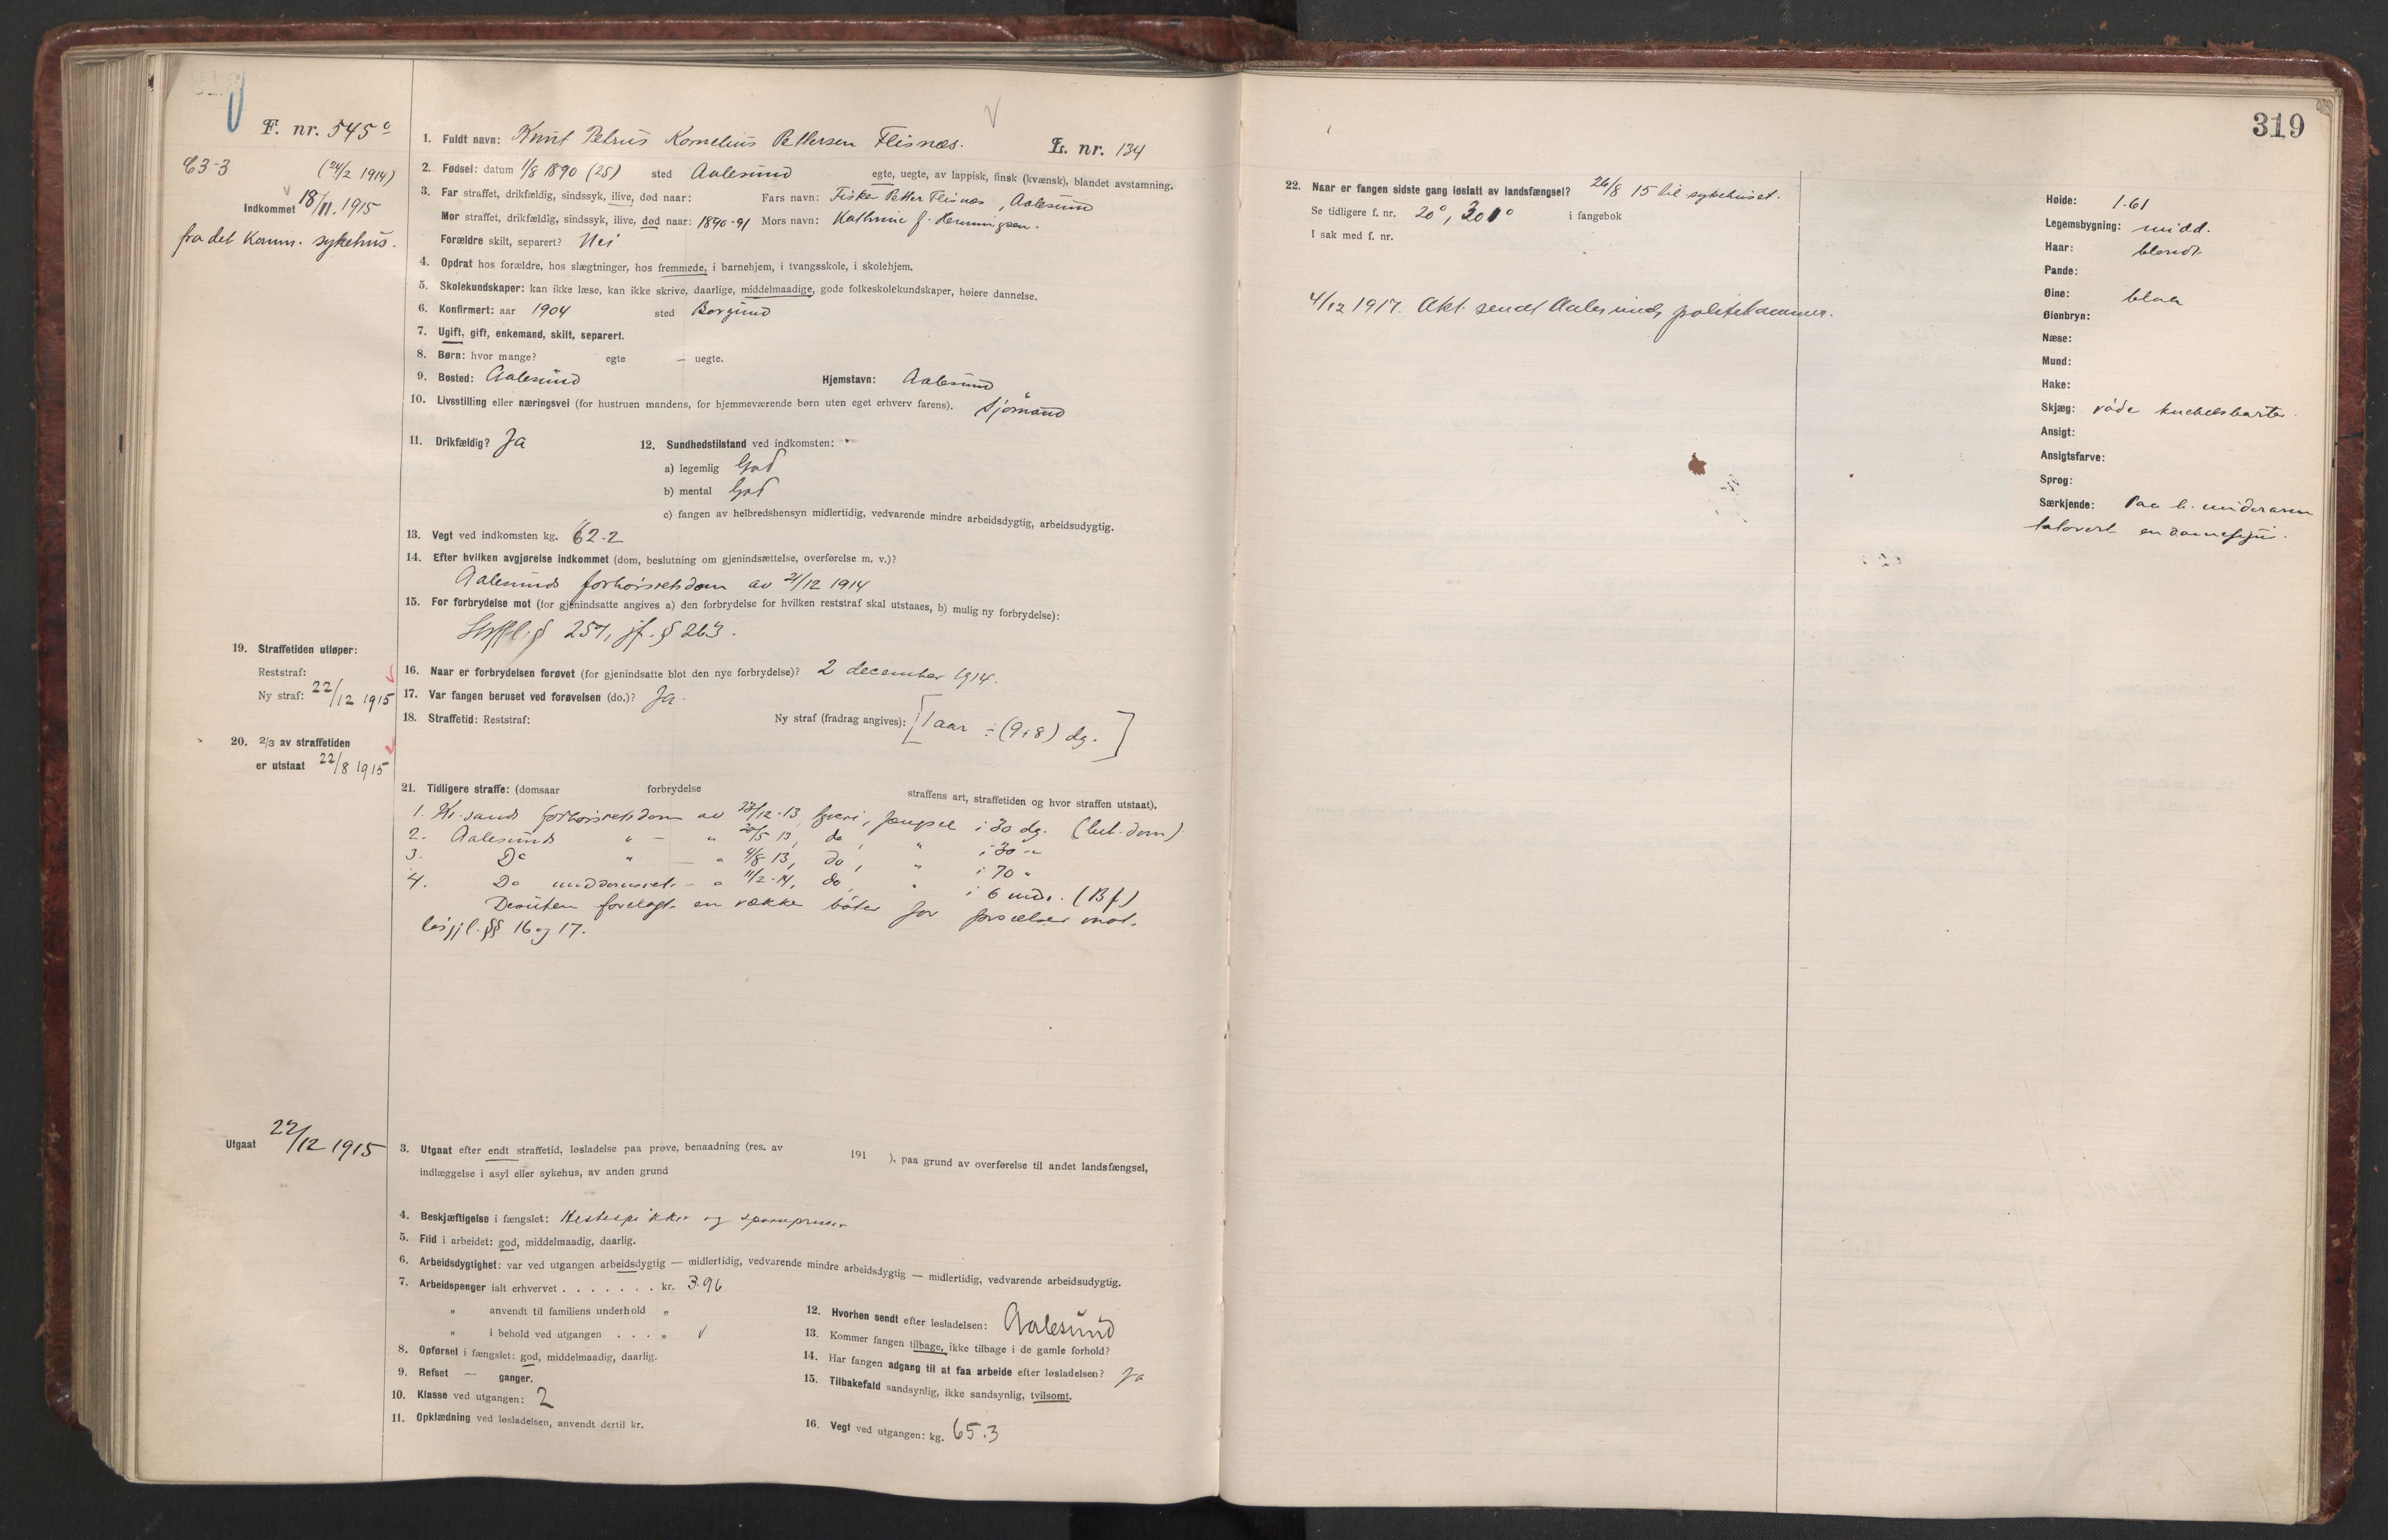 F. nr. 545º
C3-3 (24/2 1914)
Indkommet 18/11. 1915
fra det Komm. sykehus.
1. Fuldt navn: Knut Petrus Kornelius Pettersen Flisnæs. L. nr. 134
2. Fødsel: datum 1/8 1890 (25) sted Aalesund egte, uegte, av lappisk, finsk (kvænsk), blandet avstamning.
3. Far straffet, drikfældig, sindssyk, ilive, død naar: Fars navn: Fisker Petter Flisnæs, Aalesund
Mor straffet, drikfældig, sindssyk, ilive, død naar: 1890-91 Mors navn: Kathrine f. Henningsen.
Forældre skilt, separert? Nei
4. Opdrat hos forældre, hos slægtninger, hos fremmede, i barnehjem, i tvangsskole, i skolehjem.
5. Skolekundskaper: kan ikke læse, kan ikke skrive, daarlige, middelmaadige, gode folkeskolekundskaper, høiere dannelse.
6. Konfirmert: aar 1904 sted Borgund
7. Ugift, gift, enkemand, skilt, separert.
8. Børn: hvor mange? egte — uegte.
9. Bosted: Aalesund Hjemstavn: Aalesund
10. Livsstilling eller næringsvei (for hustruen mandens, for hjemmeværende børn uten eget erhverv farens). Sjømand
11. Drikfældig? Ja 12. Sundhedstilstand ved indkomsten:
a) legemlig God
b) mental God
c) fangen av helbredshensyn midlertidig, vedvarende mindre arbeidsdygtig, arbeidsudygtig.
13. Vegt ved indkomsten kg. 62.2
14. Efter hvilken avgjørelse indkommet (dom, beslutning om gjenindsættelse, overførelse m. v.)?
Aalesunds forhørsretsdom av 21/12 1914
15. For forbrydelse mot (for gjenindsatte angives a) den forbrydelse for hvilken reststraf skal utstaaes, b) mulig ny forbrydelse):
Strfl. § 257, jf. § 263.
16. Naar er forbrydelsen forøvet (for gjenindsatte blot den nye forbrydelse)? 2 december 1914.
17. Var fangen beruset ved forøvelsen (do.)? Ja.
18. Straffetid: Reststraf: Ny straf (fradrag angives): [1 aar ÷ (9+8) dg.]
19. Straffetiden utløper:
Reststraf:
Ny straf: 22/12 1915
20. 2/3 av straffetiden
er utstaat 22/8 1915
21. Tidligere straffe: (domsaar forbrydelse straffens art, straffetiden og hvor straffen utstaat).
1. Kr.sands forhørsretsdom av /12-13, tyveri, fængsel i 30 dg. (bet. dom)
2. Aalesunds " — " 20/5 13, do, " i 30 "
3. Do " — " 4/8 13, do, " i 70 "
4. Do meddomsret — " 11/2-14, do, " i 6 mdr. (Bf)
Desuten forelagt en række bøter for forseelser mot
løsgjl. §§ 16 og 17.
Utgaat 22/12 1915
3. Utgaat efter endt straffetid, løsladelse paa prøve, benaadning (res. av 191 ), paa grund av overførelse til andet landsfængsel,
indlæggelse i asyl eller sykehus, av anden grund
4. Beskjæftigelse i fængslet: Hestespikker og
5. Flid i arbeidet: god, middelmaadig, daarlig.
6. Arbeidsdygtighet: var ved utgangen arbeidsdygtig — midlertidig, vedvarende mindre arbeidsdygtig — midlertidig, vedvarende arbeidsudygtig.
7. Arbeidspenger ialt erhvervet . . . . . . . kr. 3.96
" anvendt til familiens underhold "
" i behold ved utgangen . . . " √
8. Opførsel i fængslet: god, middelmaadig, daarlig.
9. Refset — ganger.
10. Klasse ved utgangen: 2
11. Opklædning ved løsladelsen, anvendt dertil kr.
12. Hvorhen sendt efter løsladelsen: Aalesund
13. Kommer fangen tilbage, ikke tilbage i de gamle forhold?
14. Har fangen adgang til at faa arbeide efter løsladelsen? Ja
15. Tilbakefald sandsynlig, ikke sandsynlig, tvilsomt.
16. Vegt ved utgangen: kg. 65.3
319
22. Naar er fangen sidste gang løslatt av landsfængsel? 26/8 15 til sykehuset.
Se tidligere f. nr. 20º, 301º i fangebok
I sak med f. nr.
4/12 1917. Akt. sendt Aalesunds politikammer.
Høide: 1.61
Legemsbygning: midd.
Haar: blondt
Pande:
Øine: blaa
Øienbryn:
Næse:
Mund:
Hake:
Skjæg: røde knebelsbarter.
Ansigt:
Ansigtsfarve:
Sprog:
Særkjende: Paa h. underarm
tatovert en damefigur.